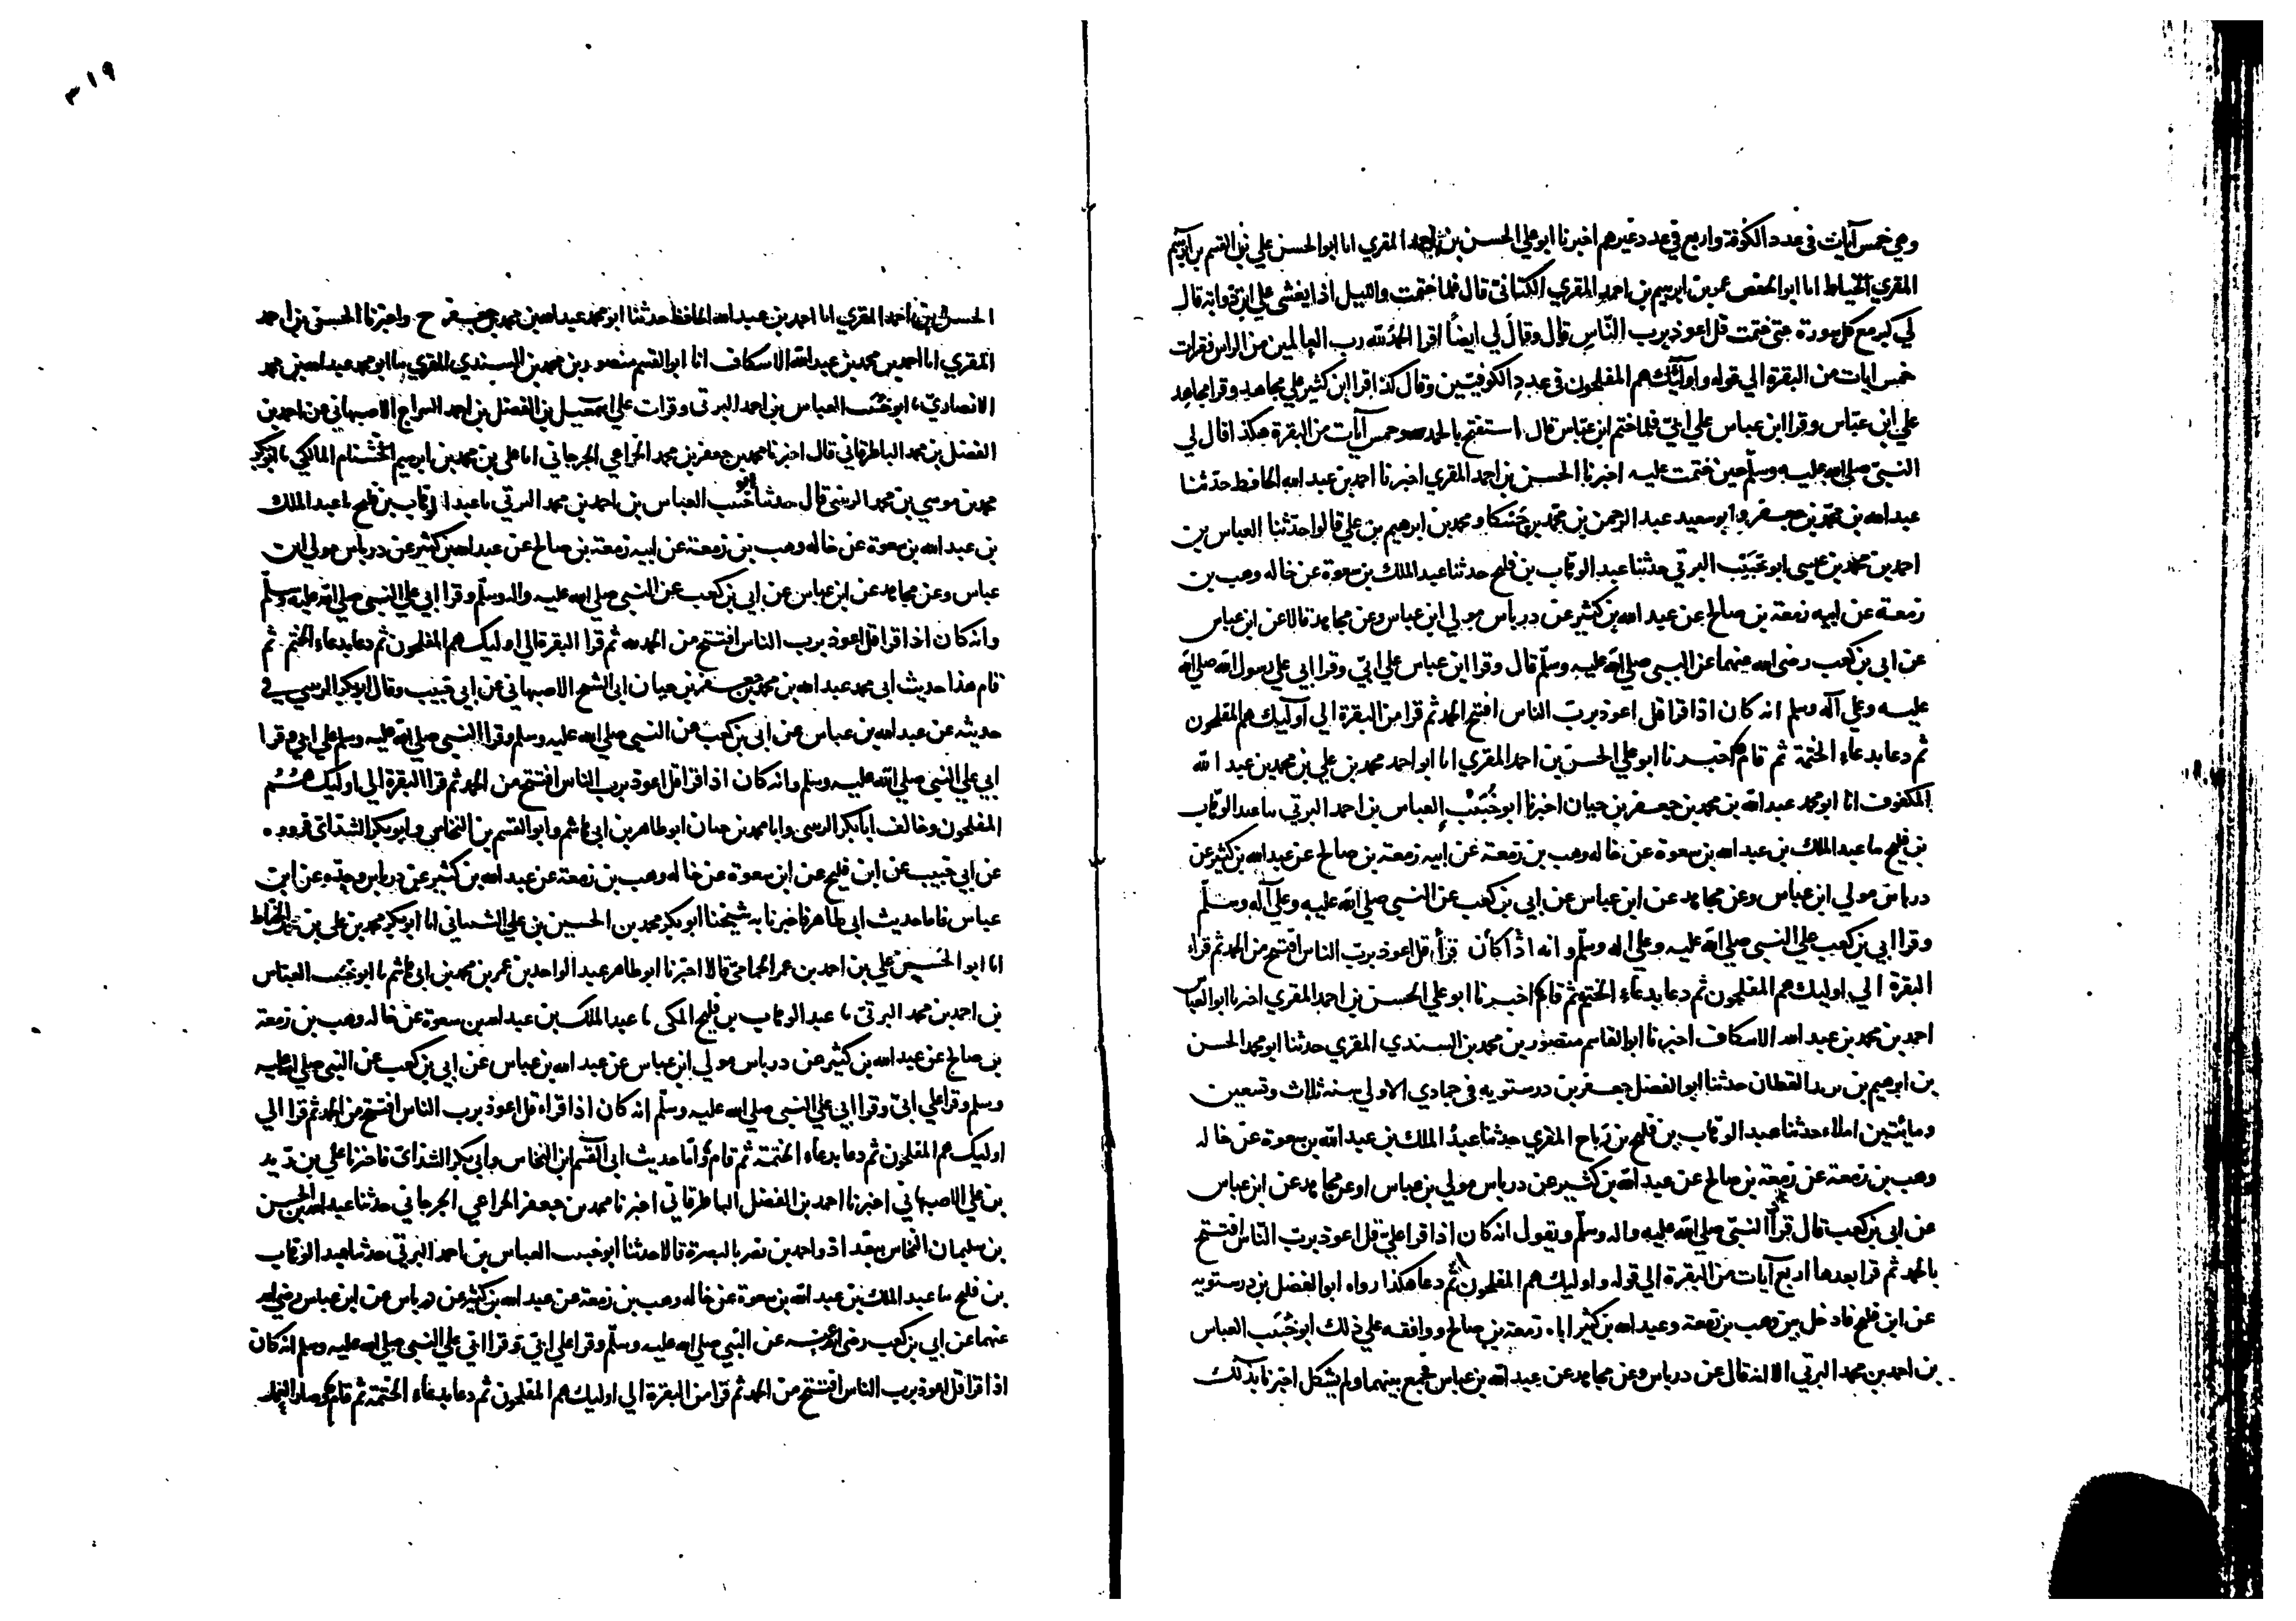 وهي خمس آيات في عدد الكوفة واربع في عدد غيرهم اخبرنا ابو علي الحسن بن احمد المقري انا ابو الحسن علي بن القسم بن ابرهيم
المقري الخياط انا ابو الحفص عمر بن ابرهيم بن احمد المقري الكتاني قال فلما ختمت والليل اذا يغشى علي ابن ذوابه قال
لي كبر مع كل سورة حتى ختمت قل اعوذ برب النّاس قال وقال لي ايضاً اقرا الحمد لله رب العالمين من الراس فقرات
خمس ايات من البقرة الي قوله واولئك هم المفلحون في عدد الكوفيّين وقال كذا قرا ابن كثير علي مجاهد وقرا مجاهد
علي ابن عبّاس وقرا ابن عباس علي ابيّ فلما ختم ابن عبّاس قال استفتح بالحمد وخمس آيات من البقرة هكذا قال لي
النبيّ صلى الله عليه وسلّم حين ختمت عليه اخبرنا الحسن بن احمد المقري اخبرنا احمد بن عبد الله الحافظ حدّثنا
عبد الله بن محمّد بن جعفر وابو سعيد عبد الرحمن بن محمّد بن حسكا ومحمد بن ابرهيم بن علي قالوا حدّثنا العباس بن
احمد بن محمد بن عيسى ابو خبيب البرتي حدثنا عبد الوهّاب بن فليح حدثنا عبد الملك بن سعوة عن خاله وهب بن
زمعة عن ابيه زمعة بن صالح عن عبد الله بن كثير عن درباس مولي ابن عباس وعن مجاهد قالا عن ابن عباس
عن ابي بن كعب رضى الله عنهما عن النبي صلي الله عليه وسلّم قال وقرا ابن عباس علي ابيّ وقرا ابي علي رسول الله صلي الله
عليه وعلي آله وسلم انه كان اذا قرا قل اعوذ برب الناس افتتح الحمد ثم قرا من البقرة الي اولئك هم المفلحون
ثم دعا بدعاء الختمة ثم قام اخبرنا ابو علي الحسن بن احمد المقري انا ابو احمد محمد بن علي بن محمد بن عبد الله
المكفوف انا ابو محمد عبد الله بن محمد بن جعفر بن حيان اخبرنا ابو خُبَيب العباس بن احمد البرتي ثنا عبد الوهّاب
بن فليح ثنا عبد الملك بن عبد الله بن سعوة عن خاله وهب بن زمعة عن ابيه زمعة بن صالح عن عبد الله بن كثير عن
درباس مولي ابن عباس وعن مجاهد عن ابن عباس عن ابي بن كعب عن النبي صلي الله عليه وعلي آله وسلّم
وقرا ابي بن كعب علي النبي صلي الله عليه وعلي اله وسلّم وانه اذا كان قرأ قل اعوذ بربّ الناس افتتح من الحمد ثم قراء
البقرة الي اوليك هم المفلحون ثم دعا بدعاء الختم ثم قام اخبرنا ابو علي الحسن بن احمد المقري اخبرنا ابو العباس
احمد بن محمد بن عبد الله الاسكاف اخبرنا ابو القاسم منصور بن محمد بن السندي المقري حدثنا ابو محمد الحسن
بن ابرهيم بن القطان حدثنا ابو الفضل جعفر بن درستويه في جمادي الاولي سنه ثلاث وتسعين
ومايتين املاء حدثنا عبد الوهّاب بن فليح بن رباح المقري حدثنا عبد الملك بن عبد الله بن سعوة عن خاله
وهب بن زمعة عن زمعة بن صالح عن عبد الله بن كثير عن درباس مولي بن عباس او عن مجاهد عن ابن عباس
عن ابي بن كعب قال قرأ النبي صلي الله عليه واله وسلّم ويقول انه كان اذا قرا عليّ قل اعوذ بربّ النّاس افتتح
بالحمد ثم قرا بعدها اربع آيات من البقرة الي قوله واوليك هم المفلحون ثم دعا هكذا رواه ابو الفضل بن درستويه
عن ابن فليح فادخل بين وهب بن زمعة وعبد الله بن كثير اباه زمعة بن صالح ووافقه علي ذلك ابو خُبَيب العباس
بن احمد بن محمد البرتي الا انه قال عن درباس وعن مجاهد عن عبد الله بن عباس فجمع بينهما ولم يشكل اخبرنا بذلك
٣١٩
الحسن بن احمد المقري انا احمد بن عبد الله الحافظ حدثنا ابو محمد عبد الله بن محمد بن جعفر ح واخبرنا الحسن بن احمد
المقري انا احمد بن محمد بن عبد الله الاسكاف انا ابو القسم منصور بن محمد بن السندي المقري ثنا ابو محمد عبد الله بن محمد
الانصاري ثنا ابو خبيب العباس بن احمد البرتي وقرات علي اسمعيل بن الفضل بن احمد السراج الاصبهاني عن احمد بن
الفضل بن محمد الباطرقاني قال اخبرنا محمد بن جعفر بن محمد الخزاعي الجرجاني انا علي بن محمد بن ابرهيم الخشنام المالكي ثنا ابو بكر
محمد بن موسي بن محمد الزينبي قال حدثنا ابو خبيب العباس بن احمد بن محمد البرتي ثنا عبد الوهّاب بن فليح ثنا عبد الملك
بن عبد الله بن سعوة عن خاله وهب بن زمعة عن ابيه زمعة بن صالح عن عبد الله بن كثير عن درباس مولي ابن
عباس وعن مجاهد عن ابن عباس عن ابي بن كعب عن النبي صلي الله عليه واله وسلّم وقرا ابي علي النبي صلي الله عليه وسلّم
وانه كان اذا قرا قل اعوذ برب الناس افتتح من الحمد لله ثم قرا البقرة الي اوليك هم المفلحون ثم دعا بدعاء الختم ثم
قام هذا حديث ابي محمد عبد الله بن محمد بن جعفر بن حيان ابي الشيح الاصبهاني عن ابي خبيب وقال ابو بكر الزينبي في
حديثه عن عبد الله بن عباس عن ابي بن كعب عن النبي صلي الله عليه وسلم وقرا النبي صلي الله عليه وسلم علي ابي وقرا
ابي علي النبي صلي الله عليه وسلم وانه كان اذا قرا قل اعوذ برب الناس افتتح من الحمد ثم قرا البقرة الي اوليك هم
المفلحون وخالف ابا بكر الزينبي وابا محمد بن حيان ابو طاهر بن ابي هاشم وابو القسم بن النخاس وابو بكر الشذاي فرووه
عن ابي خبيب عن ابن فليح عن ابن سعوة عن خاله وهب بن زمعة عن عبد الله بن كثير عن درباس وحده عن ابن
عباس فاما حديث ابي طاهر فاخبرنا به شيخنا ابو بكر محمد بن الحسين بن علي الشيباني انا ابو بكر محمد بن علي بن محمد الخياط
انا ابو الحسين علي بن احمد بن عمر الحمامي قالا اخبرنا ابو طاهر عبد الواحد بن عمر بن محمد بن ابي هاشم ثنا ابو خبيب العبّاس
بن احمد بن محمد البرتي ثنا عبد الوهاب بن فليح المكي ثنا عبد الملك بن عبد الله بن سعوة عن خاله وهب بن زمعة
بن صالح عن عبد الله بن كثير عن درباس مولي ابن عباس عن عبد الله بن عباس عن ابي بن كعب عن النبي صلي الله عليه
وسلم وقرا علي ابيّ وقرا ابي علي النبي صلي الله عليه وسلّم انه كان اذا قراء قل اعوذ برب الناس افتتح من الحمد ثم قرا الي
اوليك هم المفلحون ثم دعا بدعاء الختمة ثم قام وأمّا حديث ابي القسم ابن النخاس وابي بكر الشذاي فاخبرنا علي بن زيد
بن علي الاصبهاني اخبرنا احمد بن الفضل الباطرقاني اخبرنا محمد بن جعفر الخزاعي الجرجاني حدثنا عبد الله بن الحسن
بن سليمان النخاس ببغداذ واحمد بن نصر بالبصرة قالا حدثنا ابو خبيب العباس بن احمد البرتي حدثنا عبد الوهّاب
بن فليح ثنا عبد الملك بن عبد الله بن سعوة عن خاله وهب بن زمعة عن عبد الله بن كثير عن درباس عن ابن عباس رضى الله
عنهما عن ابي بن كعب رضى الله عنه عن النبي صلي الله عليه وسلّم وقرا علي ابيّ وقرا ابيّ علي النبي صلي الله عليه وسلم انه كان
اذا قرا قل اعوذ برب الناس افتتح من الحمد ثم قرا من البقرة الي اوليك هم المفلحون ثم دعا بدعاء الختمة ثم قام وصار العمل